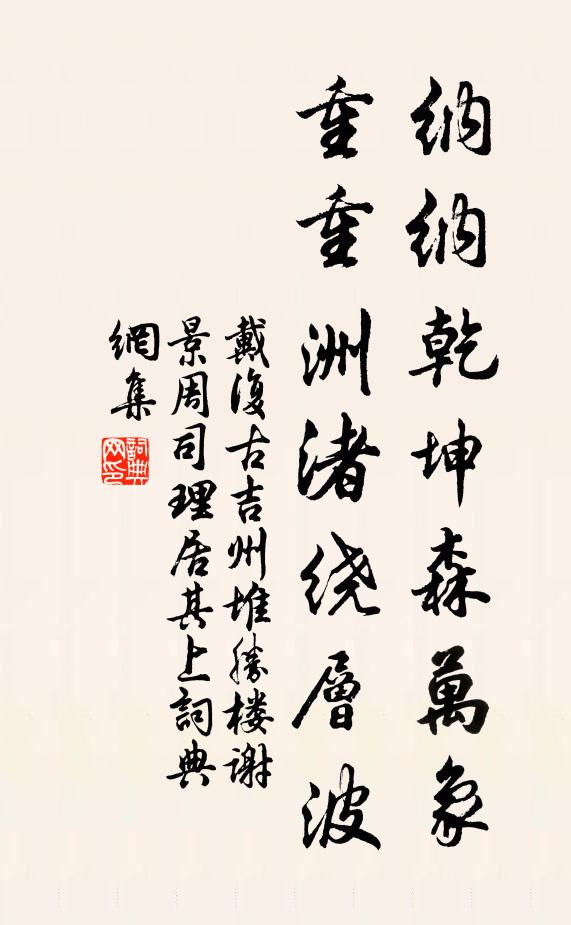 纳纳乾坤森萬象
重重洲渚绕層波
戴復古吉州堆勝楼谢
景周司理居其上詞典
網集
詞典
网印